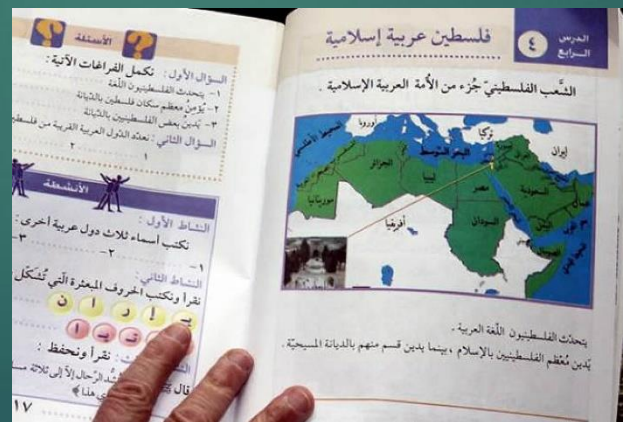 الدرس
الرابع
٤
فلسطين عربية إسلامية
الشَّعب الفلسطينيّ جُزء من الأُمة العربية الإسلامية .
المحيط الأطلسي
أوروبا
تركيا
إيران
البحر المتوسط
الجزائر
ليبيا
مصر
السعودية
موريتانيا
أفريقيا
السودان
اليمن
عمان
يتحدّث الفلسطينيون اللّغة العربية .
يَدين مُعظم الفلسطينيين بالإسلام ، بينما يدين قسم منهم بالديانة المسيحيّة .
الأسئلة
السؤال الأول : نكمل الفراغات الآتية :
١- يتحدث الفلسطينيون اللّغة
٢- يؤمن معظم سكان فلسطين بالدّيانة
٣- يَدين بعض الفلسطينيين بالدّيانة
السؤال الثاني : نعدد الدّول العربية القريبة من فلسطين
١ ٢
الأنشطة
النشاط الأول :
نكتب أسماء ثلاث دول عربية أخرى :
١- ٢- ٣-
النشاط الثاني :
نقرأ ونكتب الحروف المبعثرة الّتي تُشكّل
ا ر ا ن
نقرأ ونحفظ :
قال
الرّحال إلاّ إلى ثلاثة
هذا
١٧